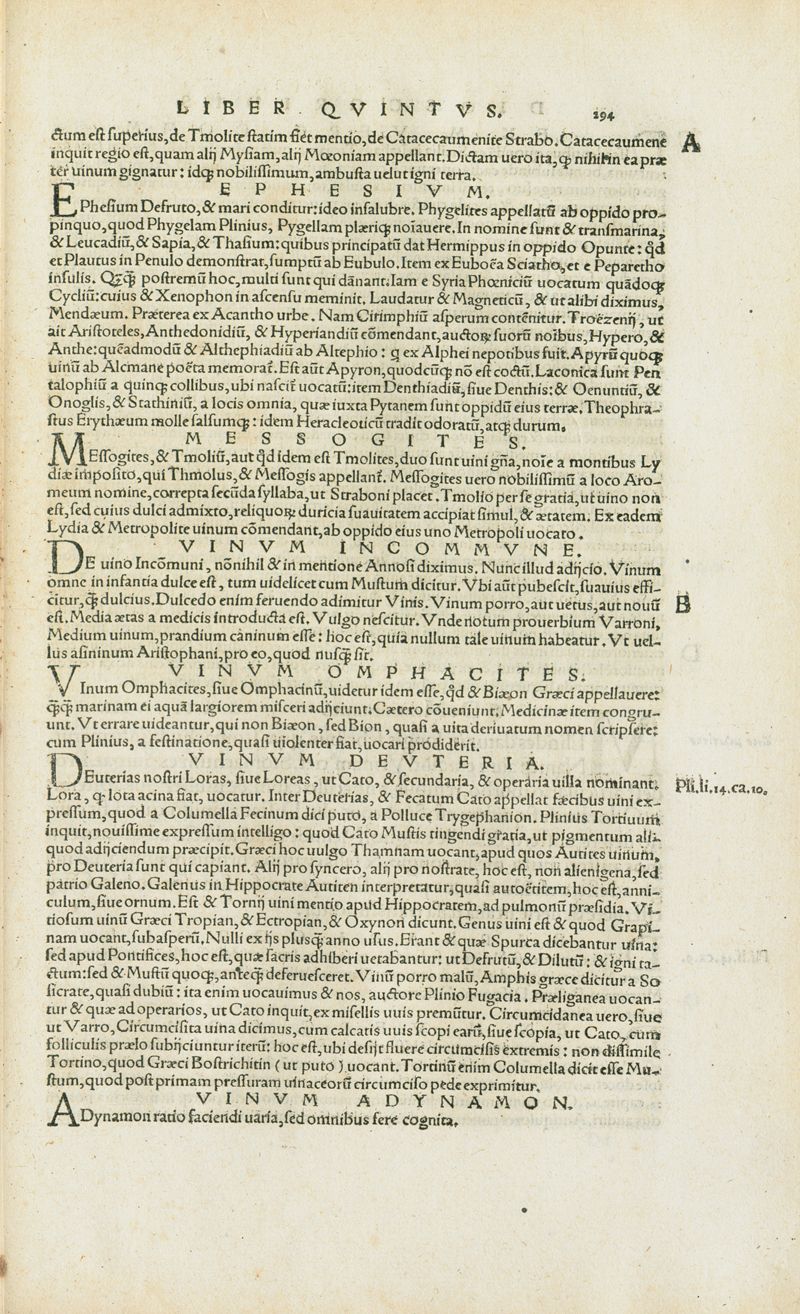 LIBER QVINTVS. 294
ctum est superius, de Tmolite statim fiet mentio, de Catacecaumenite Strabo. Catacecaumene A
inquit regio est, quam alij Mysiam, alij Mœoniam appellant. Dictam uero ita, ꝙ nihil in ea præ
ter uinum gignatur: idꝙ nobilissimum, ambusta uelut igni terra.
EPHESIVM.
EPhesium Defruto, & mari conditur: ideo insalubre. Phygelites appellatũ ab oppido pro-
pinquo, quod Phygelam Plinius, Pygellam plæriqꝫ noĩauere. In nomine sunt & transmarina,
& Leucadiũ, & Sapia, & Thasium: quibus principatũ dat Hermippus in oppido Opunte: qđ
et Plautus in Penulo demonstrat, sumptũ ab Eubulo. Item ex Eubœa Sciatho, et e Peparetho
insulis. Qꝫꝗ̃ postremũ hoc, multi sunt qui dãnant. Iam e Syria Phœniciũ uocatum quãdoqꝫ
Cycliũ: cuius & Xenophon in ascensu meminit. Laudatur & Magneticũ, & ut alibi diximus,
Mendæum. Præterea ex Acantho urbe. Nam Cirimphiũ asperum contẽnitur. Troëzenij, ut
ait Aristoteles, Anthedonidiũ, & Hyperiandiũ cõmendant, auctoꝝ suorũ noĩbus, Hypero, &
Anthe: quẽadmodũ & Althephiadiũ ab Altephio: q ex Alphei nepotibus fuit. Apyrũ quoqꝫ
uinũ ab Alcmane poëta memorat̃. Est aũt Apyron, quodcũqꝫ nõ est coctũ. Laconica sunt Pen
talophiũ a quinqꝫ collibus, ubi nascit̃ uocatũ: item Denthiadiũ, siue Denthis: & Oenuntiũ, &
Onoglis, & Stathiniũ, a locis omnia, quæ iuxta Pytanem sunt oppidũ eius terræ. Theophra-
stus Erythæum molle salsumqꝫ: idem Heracleoticũ tradit odoratũ, atqꝫ durum.
MESSOGITES.
MEssogites, & Tmoliũ, aut qđ idem est Tmolites, duo sunt uini gña, noĩe a montibus Ly
diæ imposito, qui Thmolus, & Messogis appellant̃. Messogites uero nobilissimũ a loco Aro-
meum nomine, correpta secũda syllaba, ut Straboni placet. Tmolio per se gratia, ut uino non
est, sed cuius dulci admixto, reliquoꝝ duricia suauitatem accipiat simul, & ætatem. Ex eadem
Lydia & Metropolite uinum cõmendant, ab oppido eius uno Metropoli uocato.
VINVM INCOMMVNE.
DE uino Incõmuni, nõnihil & in mentione Annosi diximus. Nunc illud adijcio. Vinum
omne in infantia dulce est, tum uidelicet cum Mustum dicitur. Vbi aũt pubescit, suauius effi-
citur, ꝗ̃ dulcius. Dulcedo enim feruendo adimitur Vinis. Vinum porro, aut uetus, aut nouũ B
est. Media ætas a medicis introducta est. Vulgo nescitur. Vnde notum prouerbium Varroni,
Medium uinum, prandium caninum esse: hoc est, quia nullum tale uinum habeatur. Vt uel-
lus asininum Aristophani, pro eo, quod nusꝗ̃ sit.
VINVM OMPHACITES.
VInum Omphacites, siue Omphacinũ, uidetur idem esse, qđ & Biæon Græci appellauere:
ꝗ̃ꝗ̃ marinam ei aquã largiorem misceri adijciunt. Cætero cõueniunt. Medicinæ item congru-
unt. Vt errare uideantur, qui non Biæon, sed Bion, quasi a uita deriuatum nomen scripsere:
cum Plinius, a festinatione, quasi uiolenter fiat, uocari prodiderit.
VINVM DEVTERIA.
DEuterias nostri Loras, siue Loreas, ut Cato, & secundaria, & operaria uilla nominant. Pli.li.14.ca.10.
Lora, ꝙ lota acina fiat, uocatur. Inter Deuterias, & Fecatum Cato appellat fæcibus uini ex-
pressum, quod a Columella Fecinum dici puto, a Polluce Trygephanion. Plinius Tortiuum
inquit, nouissime expressum intelligo: quod Cato Mustis tingendi gratia, ut pigmentum alii
quod adijciendum præcipit. Græci hoc uulgo Thamnam uocant, apud quos Autites uinum,
pro Deuteria sunt qui capiant. Alij pro syncero, alij pro nostrate, hoc est, non alienigena, sed
patrio Galeno. Galenus in Hippocrate Autiten interpretatur, quasi autoëtitem, hoc est, anni-
culum, siue ornum. Est & Tornij uini mentio apud Hippocratem, ad pulmonũ præsidia. Vi-
tiosum uinũ Græci Tropian, & Ectropian, & Oxynon dicunt. Genus uini est & quod Grapi-
nam uocant, subasperũ. Nulli ex ijs plusꝗ̃ anno usus. Erant & quæ Spurca dicebantur uina:
sed apud Pontifices, hoc est, quæ sacris adhiberi uetabantur: ut Defrutũ, & Dilutũ: & igni ta-
ctum: sed & Mustũ quoqꝫ, anteꝗ̃ deferuesceret. Vinũ porro malũ, Amphis græce dicitur a So
sicrate, quasi dubiũ: ita enim uocauimus & nos, auctore Plinio Fugacia. Præliganea uocan-
tur & quæ ad operarios, ut Cato inquit, ex misellis uuis premũtur. Circumcidanea uero, siue
ut Varro, Circumcisita uina dicimus, cum calcatis uuis scopi earũ, siue scopia, ut Cato, cum
folliculis prælo subijciuntur iterũ: hoc est, ubi desijt fluere circumcisis extremis: non dissimile
Tortino, quod Græci Bostrichitin (ut puto) uocant. Tortinũ enim Columella dicit esse Mu-
stum, quod post primam pressuram uinaceorũ circumciso pede exprimitur.
VINVM ADYNAMON.
ADynamon ratio faciendi uaria, sed omnibus fere cognita.